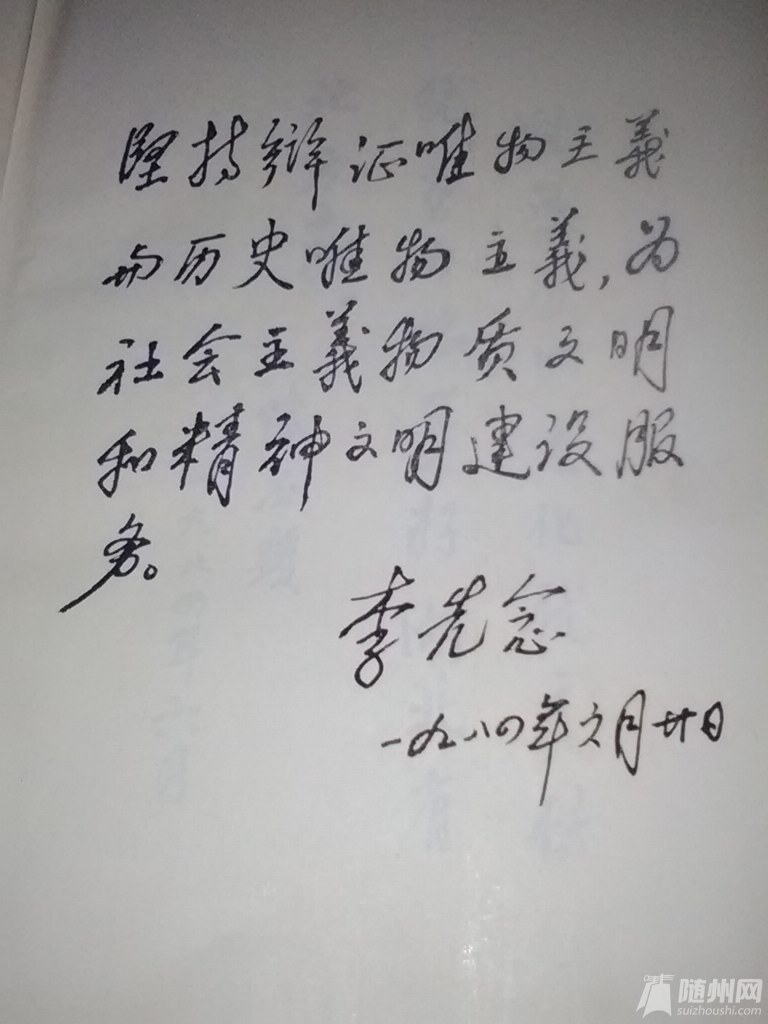 坚持辩证唯物主義
与历史唯物主義,为
社会主義物质文明
和精神文明建设服
务。
李先念
一九八四年六月廿日
随州网
suizhoushi.com